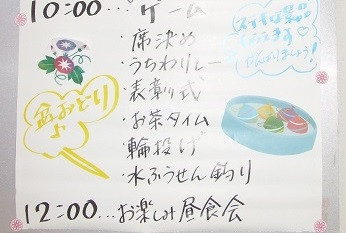 10:00...ゲーム
・席決め
・うちわリレー
・表彰式
・お茶タイム
・輪投げ
・水ふうせん釣り
12:00...お楽しみ昼食会
盆おどり♪